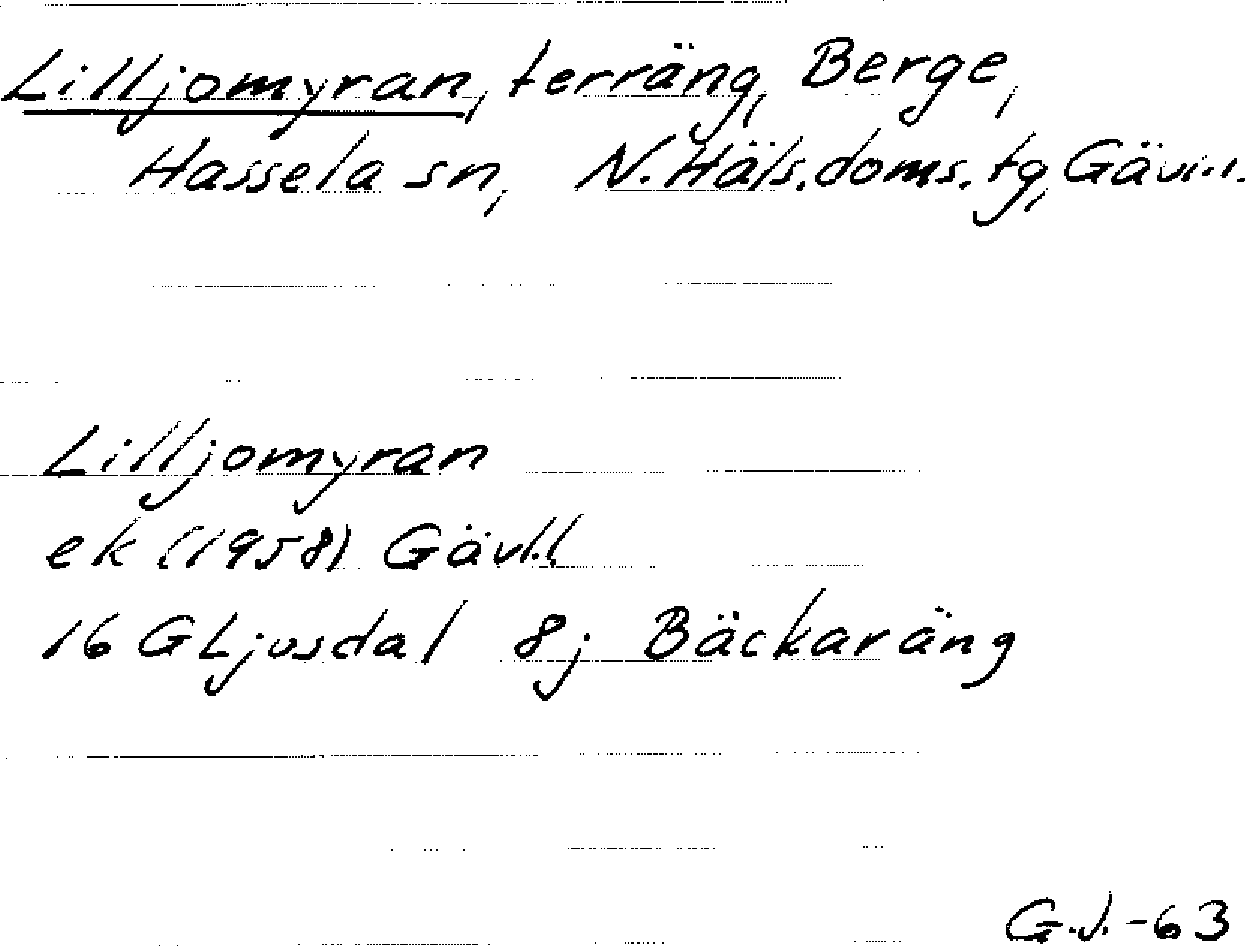 Lilljomyran, terräng, Berge,
Hassela sn, N. Häls. doms. tg, Gävl.l.
Lilljomyran
ek (1958) Gävl.l.
16 G Ljusdal 8j Bäckaräng
G.J.-63